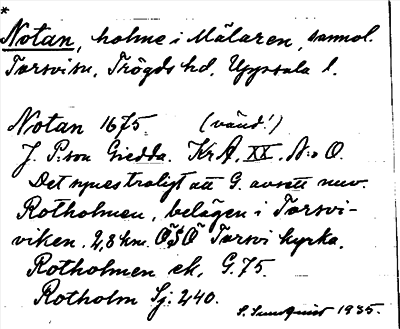 *
Notan, holme i Mälaren, sannol.
Torsvi sn, Trögds hd, Uppsala l.
Notan 1675. (vänd!)
J. P:son Giedda. KrA, XX, N:o O.
Det synes troligt att G. avsett nuv.
Rotholmen, belägen i Torsvi-
viken, 2,8 km ÖSÖ Torsvi kyrka.
Rotholmen ek. G. 75.
Rotholm Sj: 240.
S. Sundquist 1935.